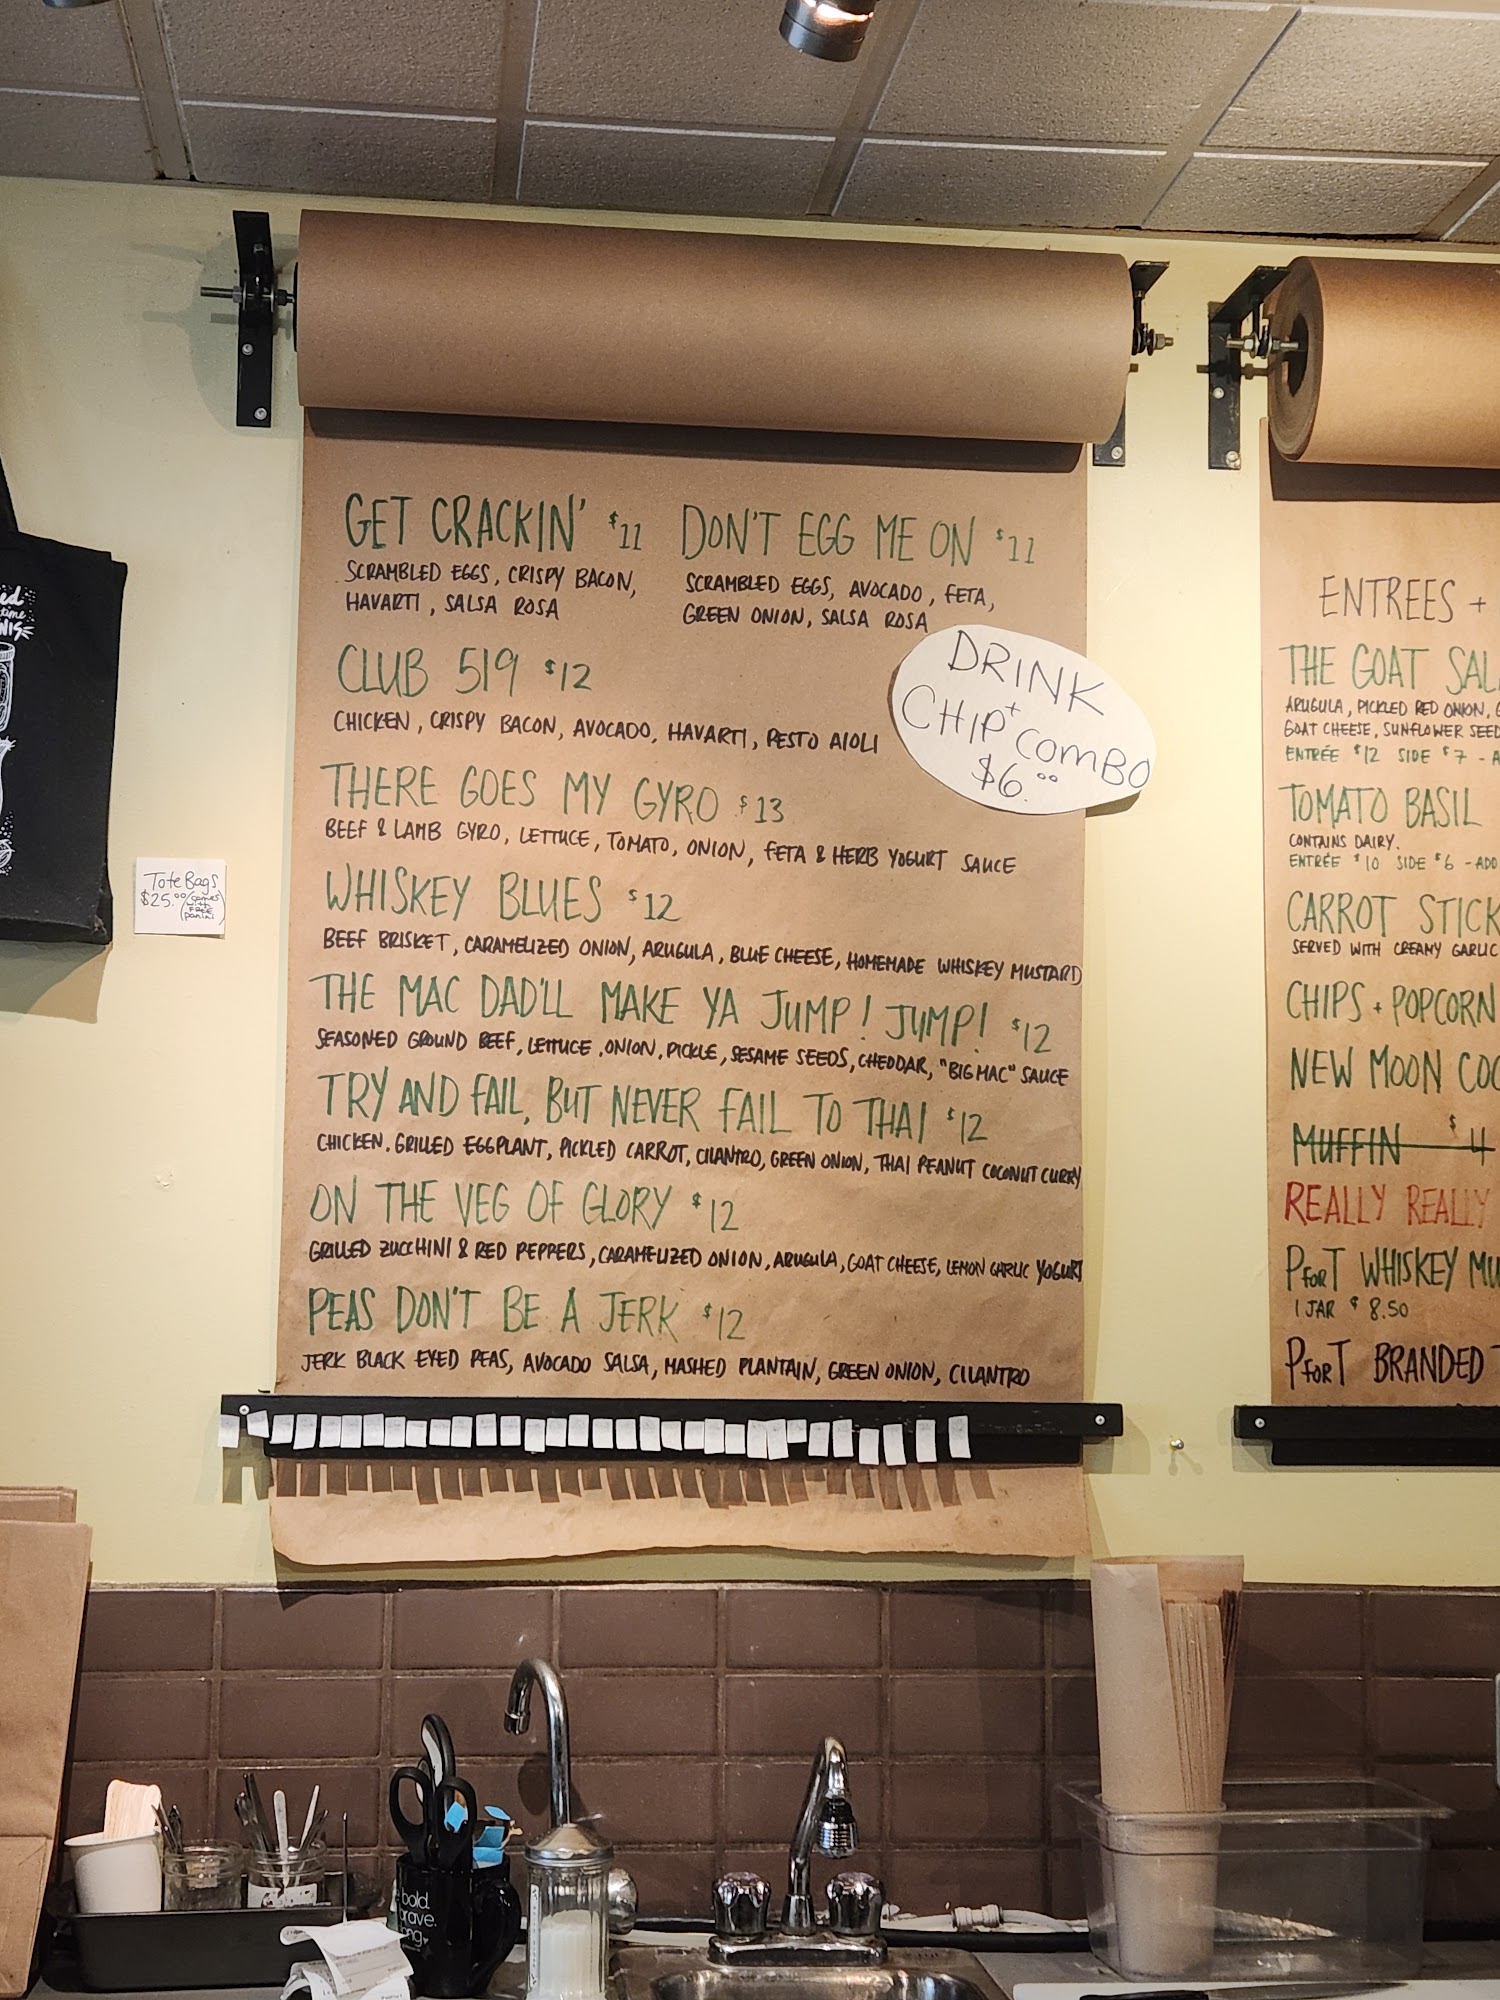 GET CRACKIN' $11
SCRAMBLED EGGS, CRISPY BACON,
HAVARTI, SALSA ROSA
DON'T EGG ME ON $11
SCRAMBLED EGGS, AVOCADO, FETA,
GREEN ONION, SALSA ROSA
CLUB 519 $12
CHICKEN, CRISPY BACON, AVOCADO, HAVARTI, PESTO AIOLI
DRINK
+
CHIP COMBO
$6.00
THERE GOES MY GYRO $13
BEEF & LAMB GYRO, LETTUCE, TOMATO, ONION, FETA & HERB YOGURT SAUCE
WHISKEY BLUES $12
BEEF BRISKET, CARAMELIZED ONION, ARUGULA, BLUE CHEESE, HOMEMADE WHISKEY MUSTARD
THE MAC DAD'LL MAKE YA JUMP! JUMP! $12
SEASONED GROUND BEEF, LETTUCE, ONION, PICKLE, SESAME SEEDS, CHEDDAR, "BIG MAC" SAUCE
TRY AND FAIL, BUT NEVER FAIL TO THAI $12
CHICKEN, GRILLED EGGPLANT, PICKLED CARROT, CILANTRO, GREEN ONION, THAI PEANUT COCONUT CURRY
ON THE VEG OF GLORY $12
GRILLED ZUCCHINI & RED PEPPERS, CARAMELIZED ONION, ARUGULA, GOAT CHEESE, LEMON GARLIC YOGURT
PEAS DON'T BE A JERK $12
JERK BLACK EYED PEAS, AVOCADO SALSA, MASHED PLANTAIN, GREEN ONION, CILANTRO
Tote Bags
$25.00 (comes
with
FREE
panini)
ENTREES +
THE GOAT SAL
ARUGULA, PICKLED RED ONION,
GOAT CHEESE, SUNFLOWER SEED
ENTRÉE $12 SIDE $7 - A
TOMATO BASIL
CONTAINS DAIRY.
ENTRÉE $10 SIDE $6 - ADD
CARROT STICK
SERVED WITH CREAMY GARLIC
CHIPS + POPCORN
NEW MOON COO
MUFFIN $4
REALLY REALLY
PforT WHISKEY MU
1 JAR $8.50
PforT BRANDED T
bold.
brave.